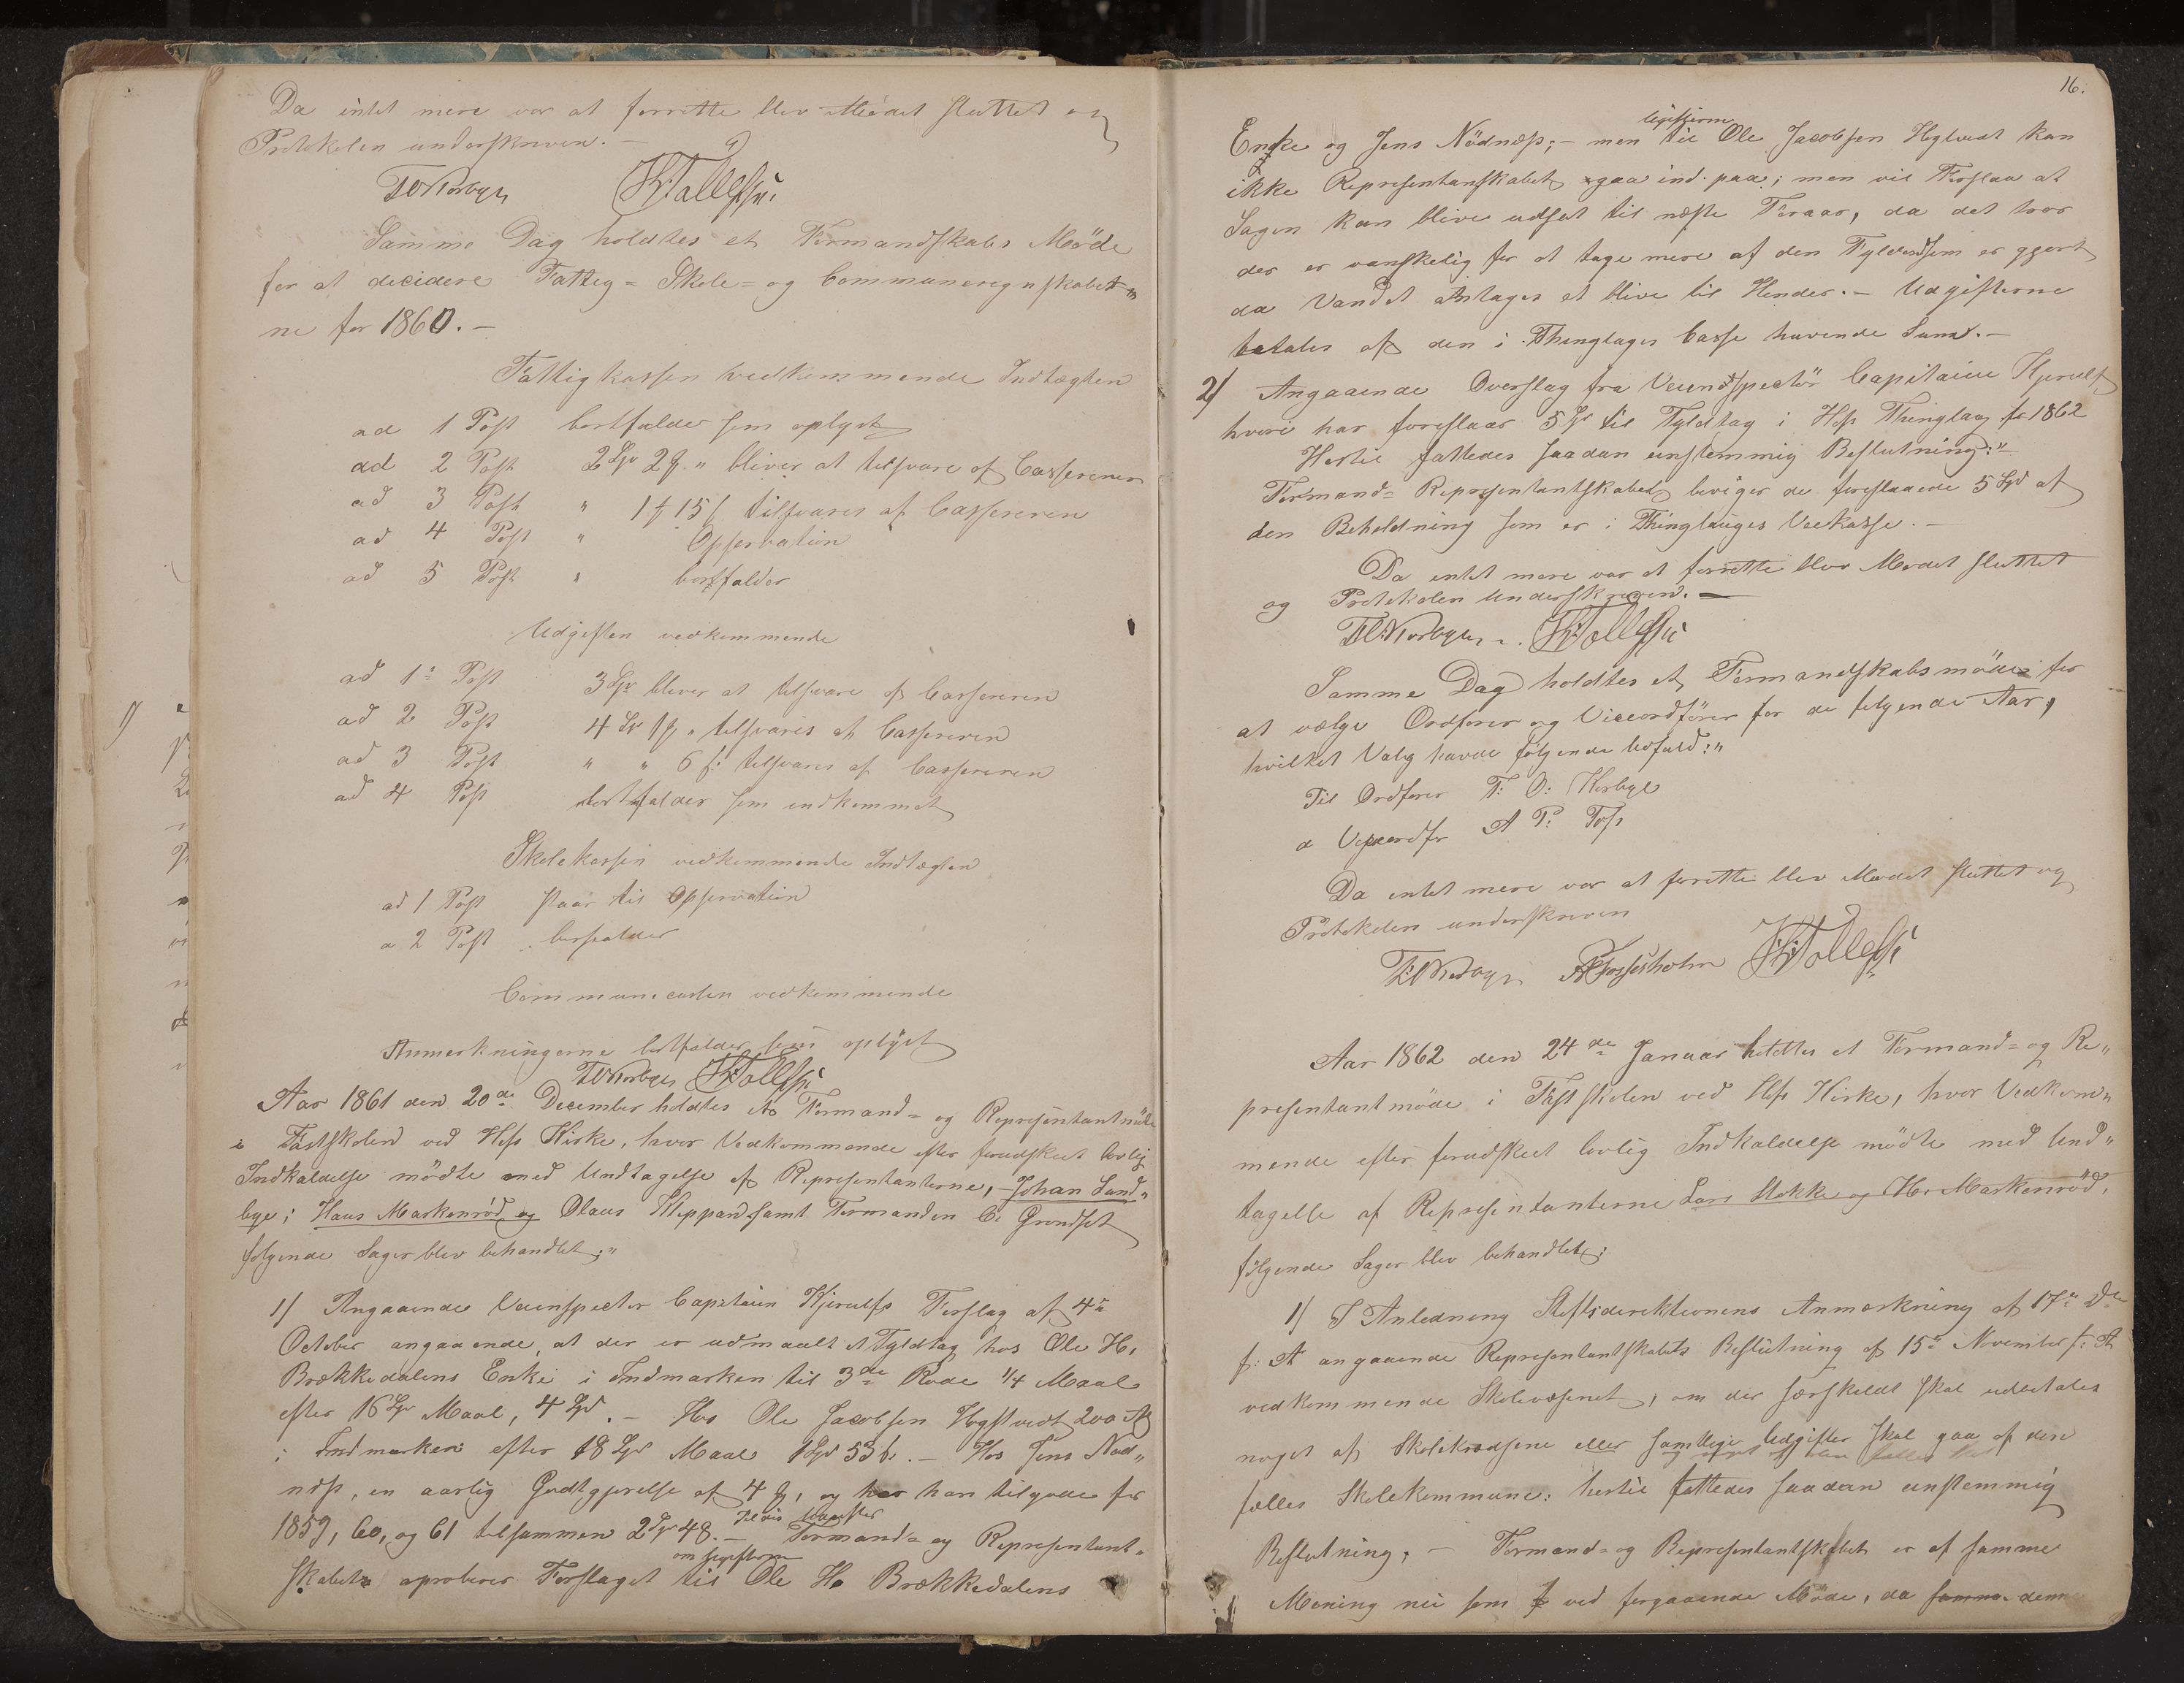 Da intet mere var at forrette blev Mödet sluttet og
Protokolen underskreven. –
Samme Dag holdtes et Formandskabs Möde
for at decidere Fattig= Skole= og Communeregnskabet„
ne for 1860. –
Fattigkassen vedkommende Indtægten
ad 1 Post bortfalder som oplyst
ad 2 Post 2 Spd 2 „ bliver at tilsvare af Cassereren
ad 3 Post „ 1 15 tilsvares af Cassereren
ad 4 Post „ Opservation
ad 5 Post „ bortfalder
Udgiften vedkommende
ad 1ˢ Post 3 Spd bliver at tilsvare af Cassereren
ad 2 Post 4 Spd 1 „ tilsvares af Cassereren
ad 3 Post „ „ 6 ſ: tilsvares af Cassereren
ad 4 Post bortfalder som indkommet
Skolekassen vedkommende Indtægten
ad 1 Post staar til Opservation
a 2 Post bortfalder
Communecassen vedkommende
Anmerkningerne bortfalder som oplyst
Aar 1861 den 20de December holdtes et Formand= og Representantmöde
i Fastskolen ved Hofs Kirke, hvor Vedkommende efter forudskeet lovlig
Indkaldelse mödte med Undtagelse af Representanterne, Johan Sand„
bye; Hans Markenröd og Olaus Kleppan samt Formanden C. Grondset
folgende Sager blev behandlet;„
1/ Angaaende Veiinspecteur Capitaien Kjerulfs Forslag af 4de
October angaaende, at der er udmaalt et Fyldtag hos Ole H.
Brækkedalens Enke i Indmarken til 3de Rode 1/4 Maal
efter 16 Spd Maal, 4 Spd. – Hos Ole Jacobsen Hogstvedt 200
i Indmarken efter 18 Spd Maal 1 Spd 53 ſ. – Hos Jens Nöd„
næs, en aarlig Godtgjorelse af 4, og har han tilgode for
1859, 60, og 61 tilsammen 2 Spd 48. – Formand= og Representant„
om
skabet aproberer Forslaget til Ole H. Brækkedalens
16.
Enke og Jens Nödnæs; – men til Ole Jacobsen Hogtvedt kan
ikke Representanskabet gaa ind paa; men vil Forslaa at
Sagen kan blive udsat til næste Foraar, da det tror
der er vanskelig for at tage mere af den Fyld som er gjort
da Vandet antages at blive til Hinder. – Udgifterne
betales af den i Thinglagets Casse havende Sum. –
2/ Angaaende Overslag fra Veiindspectör Capitaien Kjerulf
hvori han foreslaar 5 Spd til Fyldtag i Hofs Thinglag for 1862
Hertil fattedes saadan enstemmig Beslutning:„
Formand= Representantskabet beviger de foreslaaede 5 Spd af
den Beholdning som er i Thinglauges Veikasse. –
Da intet mere var at forrette blev Mödet sluttet
og Protokolen underskreven. –
Samme Dag holdtes et Formandskabsmöde for
at vælge Ordforer og Viceordförer for de folgende Aar,
hvilket Valg havde følgende udfald:„
Til Ordforer T: O: Korbye
a Viceordfr A P: Fos
Da intet mere var at forette blev Mödet sluttet og
Protokolen underskreven
Aar 1862 den 24de Januar holdtes et Formand= og Re„
presentantmöde i Fastskolen ved Hofs Kirke, hvor Vedkom„
mende efter forudskeet lovlig Indkaldelse mödte med Und„
tagelse af Representanterne Lars Stokke og H. Markenröd,
fölgende Sager blev behandlet;
1/ I Anledning Stiftsdirektionens Anmærkning af 17de Dec
f: A angaaende Representantskabets Beslutning af 15de November f: A
vedkommende Skolevæsenet, om der særskeldt skal udbetales
noget af Skolekredsene eller samtlige Udgifter skal gaa af den
fælles Skolekommune: hertil fattedes saadan enstemmig
Beslutning; – Formand= og Representantskabet er af samme
Mening nu som ved forgaaende Möde, da samme denne